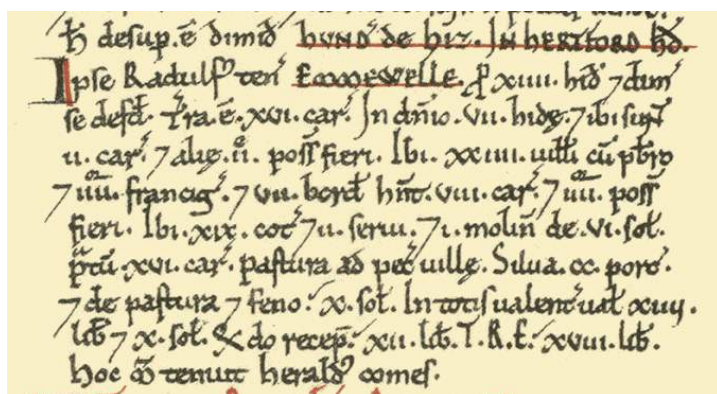 ħ desup. ē dimiđ HUND̄ de hiz. IN HERTFORD HD̄.
Ipse Radulf᾿ ten̄ EMMEWELLE. ꝑ xiiii. hiđ ⁊ dim᾿
se defđ. Tr̄a.ē. xvi. car᾿. In dn̄io. vii. hidę. ⁊ ibi sunt
ii. car᾿. ⁊ alię. ii. poss̄ fieri. Ibi. xxiiii. uilłi cū pb̄ro
⁊ iiii. francig᾿. ⁊ vii. borđ hn̄t. viii. car᾿. ⁊ iiii. poss̄
fieri. Ibi. xix. cot᾿ ⁊ ii. serui. ⁊ i. molin̄ de. vi. soł.
p̄tū. xvi. car᾿. pastura ad pec᾿ uillę. Silua. cc. porc᾿.
⁊ de pastura ⁊ feno: x. soł. In totis ualent᾿ uał xiiii.
liƀ ⁊ x. soł. Q̄do recep̄: xii. liƀ. T.R.E. xviii. liƀ.
Hoc m̄ tenuit herald᾿ comes.